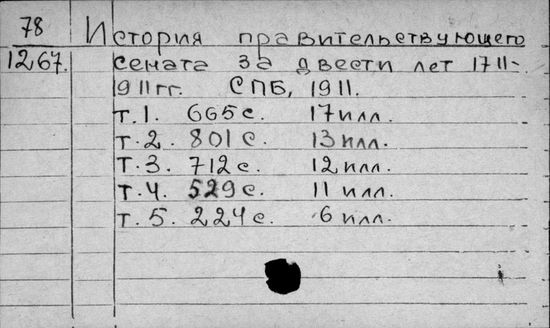 78
1267.
История правительствующего
сената за двести лет 1711-
1911гг. СПБ, 1911.
т. 1. 665с. 17 илл.
т. 2. 801с. 13 илл.
т. 3. 712с. 12 илл.
т. 4. 529с. 11 илл.
т. 5. 224с. 6 илл.